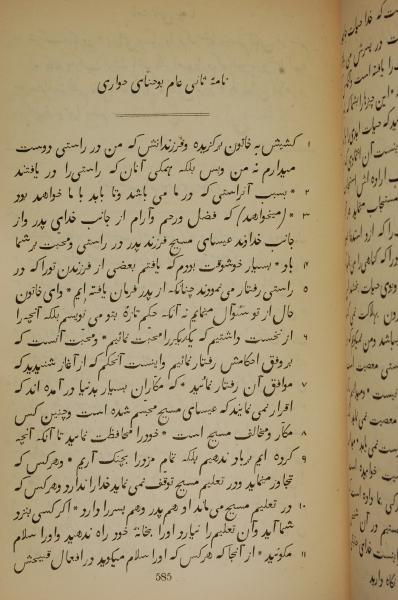 نامهٔ ثانی عام یوحنای حواری
۱ کشیش به خاتون برگزیده و فرزندانش که من در راستی دوست
میدارم نه من وبس بلکه همگی آنان که راستی را در یافتند
۲ * بسبب آن راستی که در ما می باشد وتا بابد با ما خواهد بود
۳ * (میخواهد) که فضل ورحم وآرام از جانب خدای پدر واز
جانب خداوند عیسای مسیح فرزند پدر در راستی ومحبت بر شما
۴ باد * بسیار خوشوقت بودم که یافتم بعضی از فرزندن تو را که در
۵ راستی رفتار می نمودند چنانکه از پدر فرمان یافته ایم * وای خاتون
حال از تو سئوال مینمایم نه آنکه حکم تازه بتو می نویسم بلکه آنچه را
۶ از نخست داشتیم که یکدیگر را محبت نمائیم * ومحبت آنست که
بر وفق احکامش رفتار نمائیم واینست آن حکم که از آغاز شنیدید که
۷ موافق آن رفتار نمائید * که مکاران بسیار بدنیا در آمده اند که
اقرار نمی نمایند که عیسای مسیح مجسم شده است وچنین کس
۸ مکار ومخالف مسیح است * خود را محافظت نمائید تا آنکه آنچه
۹ کرده ایم بر باد ندهیم بلکه تمام مزد را بچنگ آریم * وهر کس که
تجاوز مینماید ودر تعلیم مسیح توقف نمی نماید خدا را ندارد وهر کس که
۱۰ در تعلیم مسیح می ماند او هم پدر وهم پسر را دارد * اگر کسی بنزد
شما آید وآن تعلیم را نیارد او را بخانهٔ خود راه ندهید واو را سلام
۱۱ مگوئید * از آنجا که هر کس که او را سلام میگوید در افعال قبیحش
585